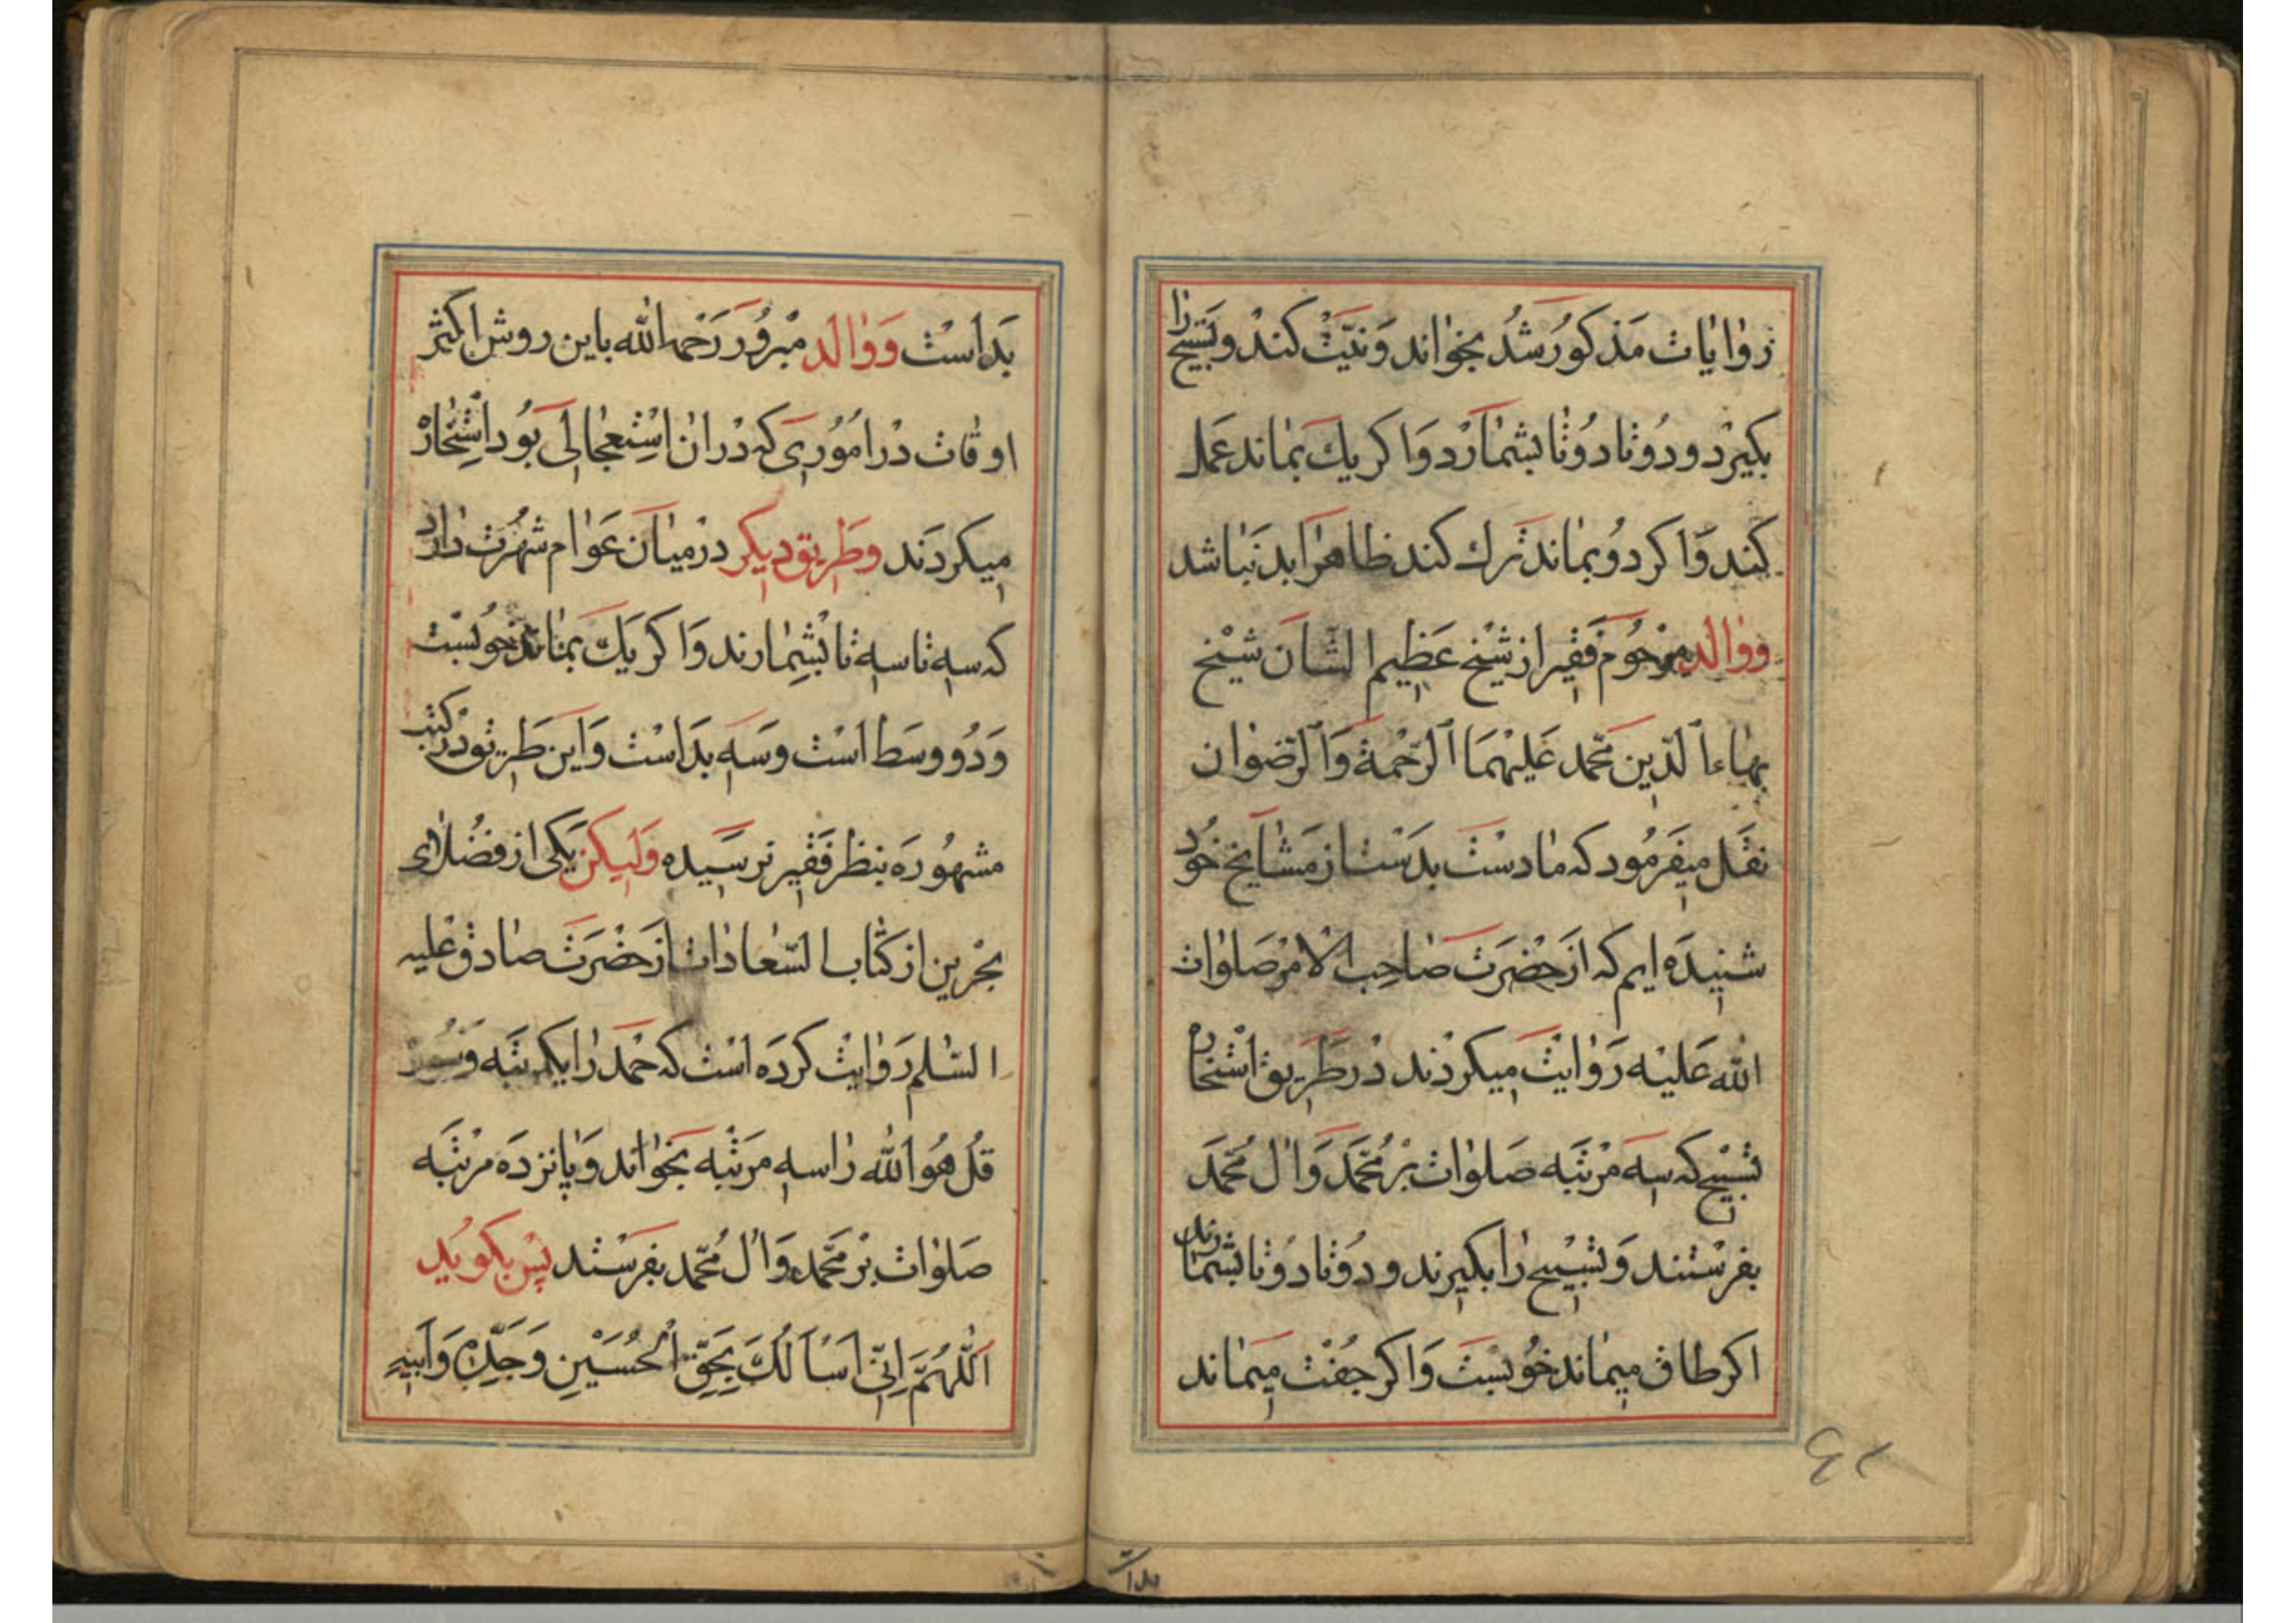 روایات مذکور شد بخواند و نیت کند و تسبیح را
بکیرد و دوتا دوتا بشمارد و اکر یك بماند عمل
کند و اکر دو بماند ترك کند ظاهرا بد نباشد
و والد مرحوم فقیر از شیخ عظیم الشان شیخ
بهاء الدین محمد علیهما الرحمة و الرضوان
نقل میفرمود که ما دست بدست از مشایخ خود
شنیده ایم که از حضرت صاحب الامر صلوات
الله علیه روایت میکردند در طریق استخاره
تسبیح که سه مرتبه صلوات بر محمد و ال محمد
بفرستند و تسبیح را بکیرند و دوتا دوتا بشمارند
اکر طاق میماند خوبست و اکر جفت میماند
بد است و والد مبرور رحمه الله باین روش اکثر
اوقات در اموری که دران استعجالی بود استخاره
میکردند و طریق دیکر در میان عوام شهرت دارد
که سه تا سه تا بشمارند و اکر یك بماند خوبست
و دو وسط است و سه بد است و این طریق در کتب
مشهوره بنظر فقیر نرسیده ولیکن یکی از فضلای
بحرین از کتاب السعادات از حضرت صادق علیه
السلم روایت کرده است که حمد را یکمرتبه و سوره
قل هو الله را سه مرتبه بخواند و پانزده مرتبه
صلوات بر محمد و ال محمد بفرستد پس بکوید
اَللّٰهُمَّ اِنّی اَسْاَلُكَ بِحَقِّ الْحُسَیْنِ وَجَدِّهِ وَاَبیهِ
بد است